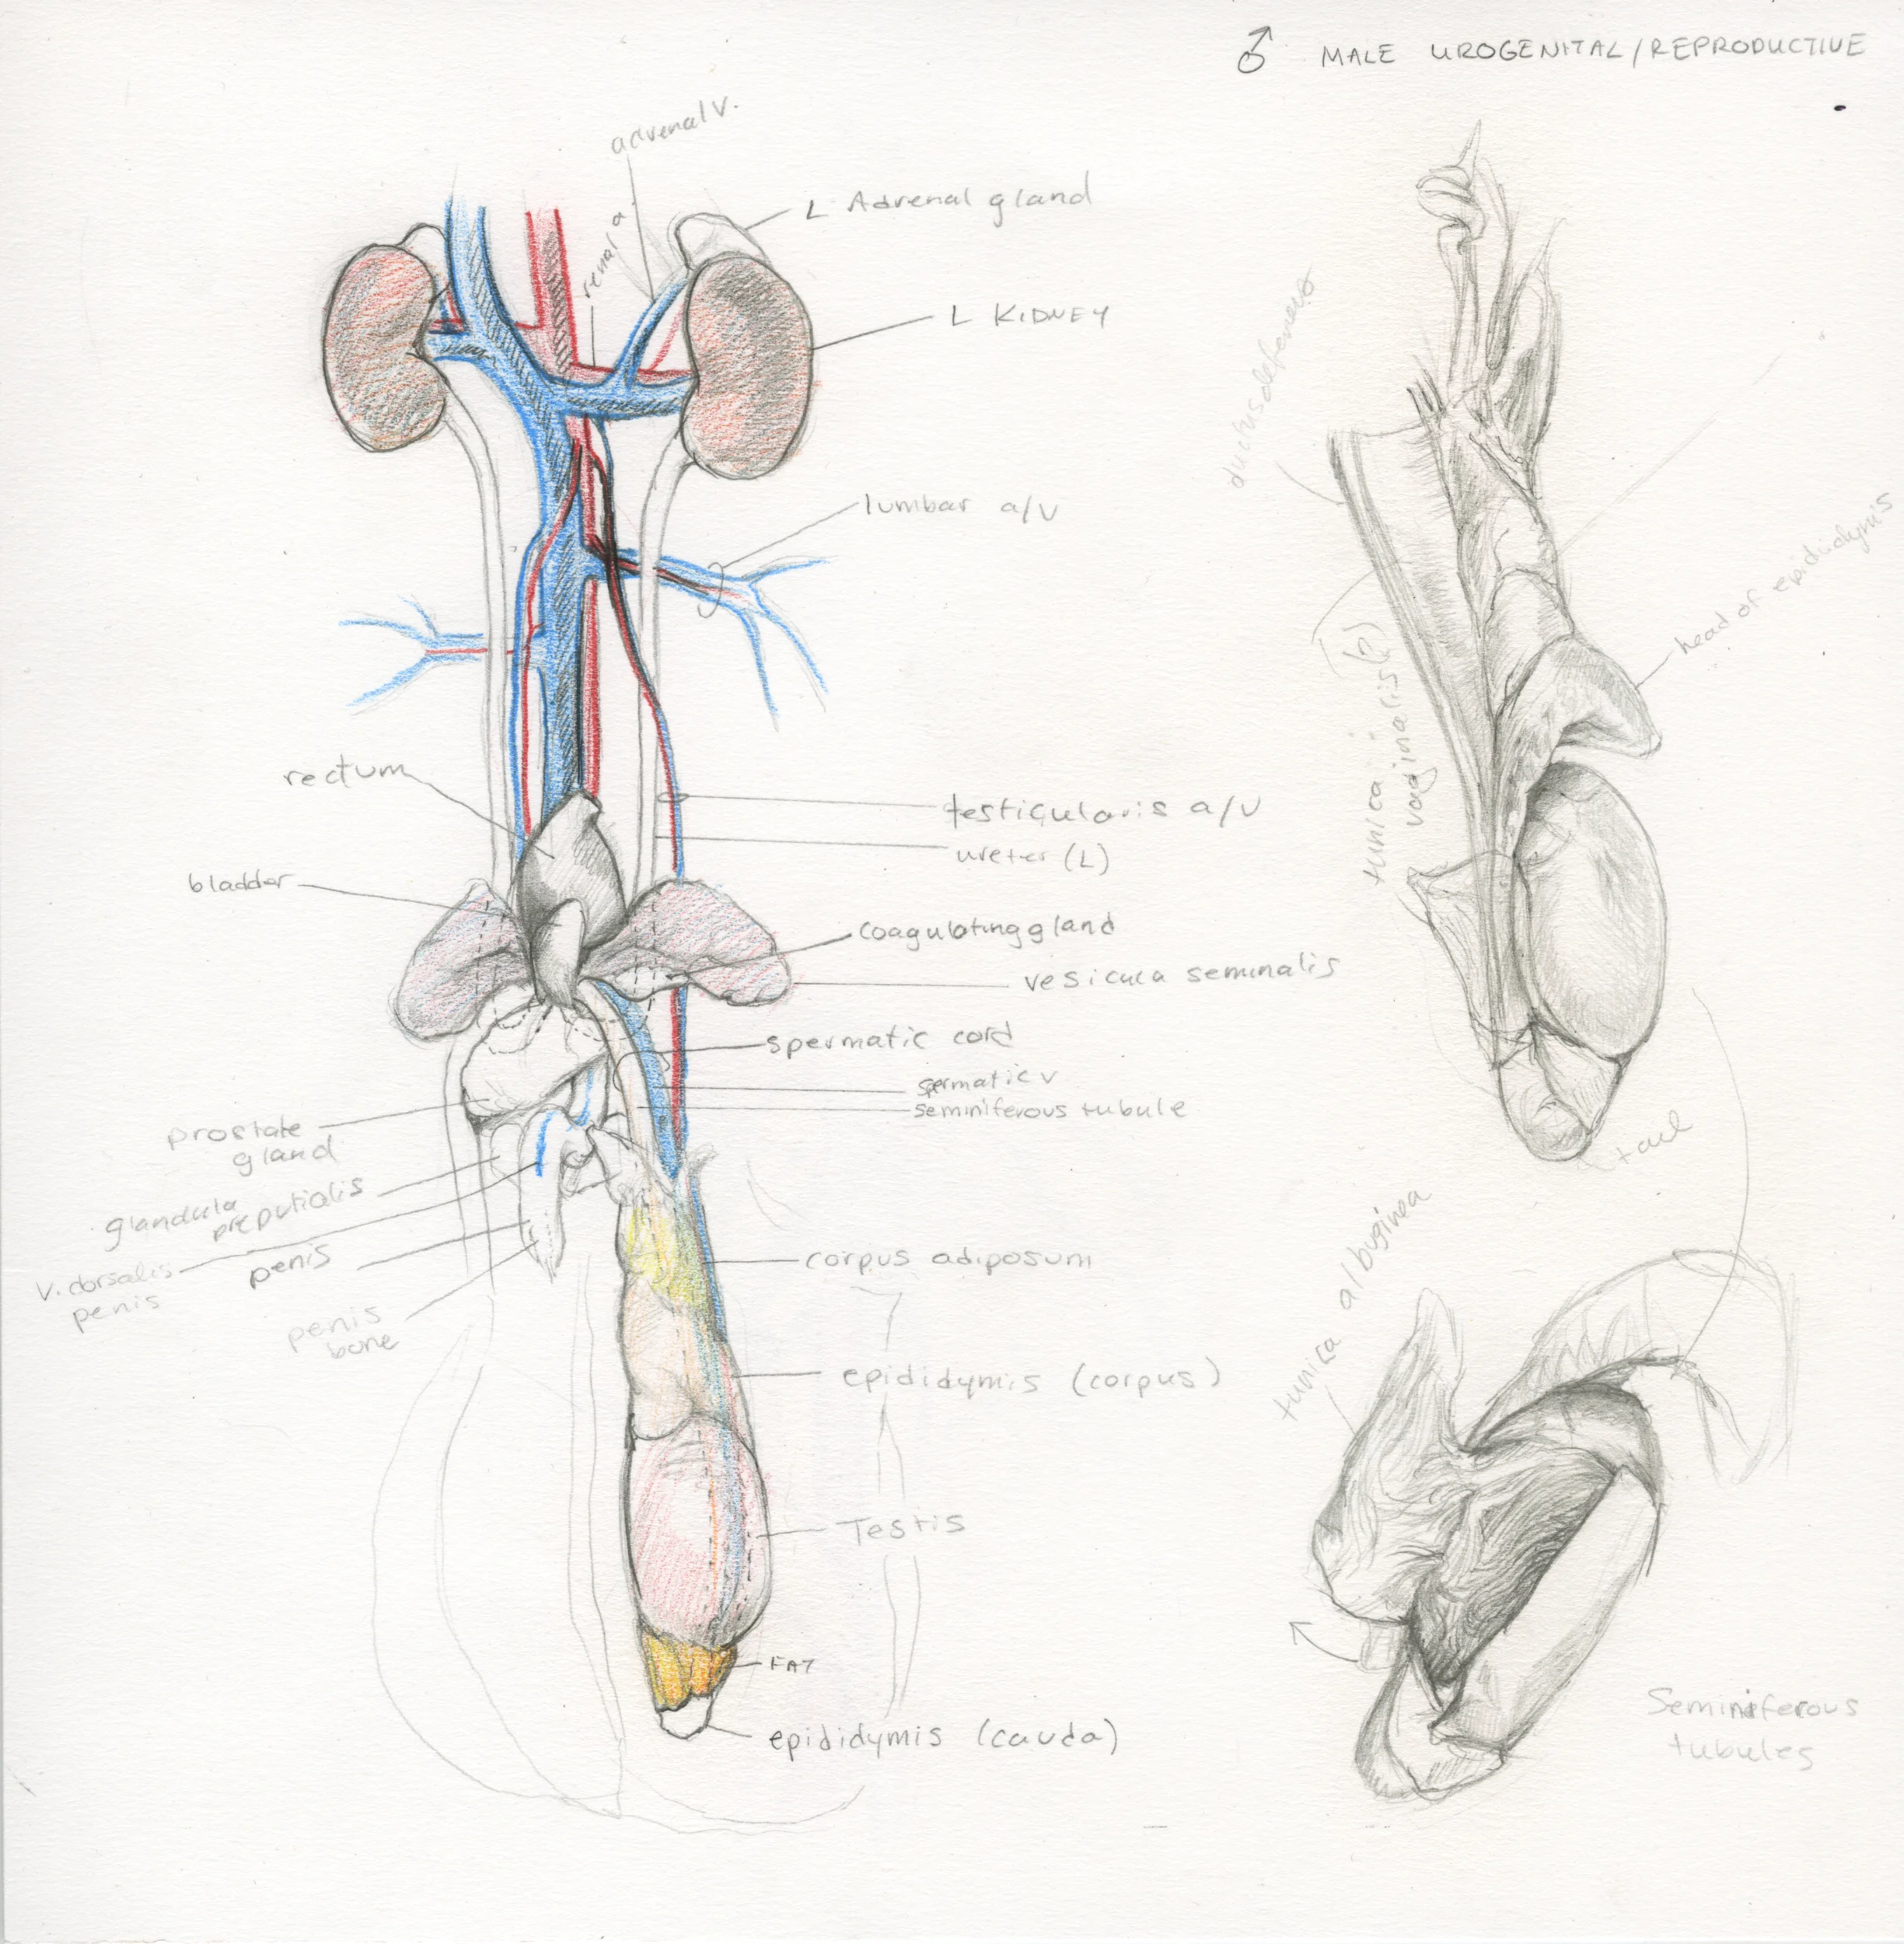 ♂ MALE UROGENITAL/REPRODUCTIVE
adrenal v.
renal a.
L Adrenal gland
L KIDNEY
lumbar a/v
rectum
testicularis a/v
ureter (L)
bladder
coagulating gland
vesicula seminalis
spermatic cord
spermatic v
seminiferous tubule
prostate
gland
glandula
preputialis
v. dorsalis
penis
penis
penis
bone
corpus adiposum
epididymis (corpus)
Testis
FAT
epididymis (cauda)
ductus deferens
tunica
vaginalis (?)
head of epididymis
tail
tunica albuginea
Seminiferous
tubules